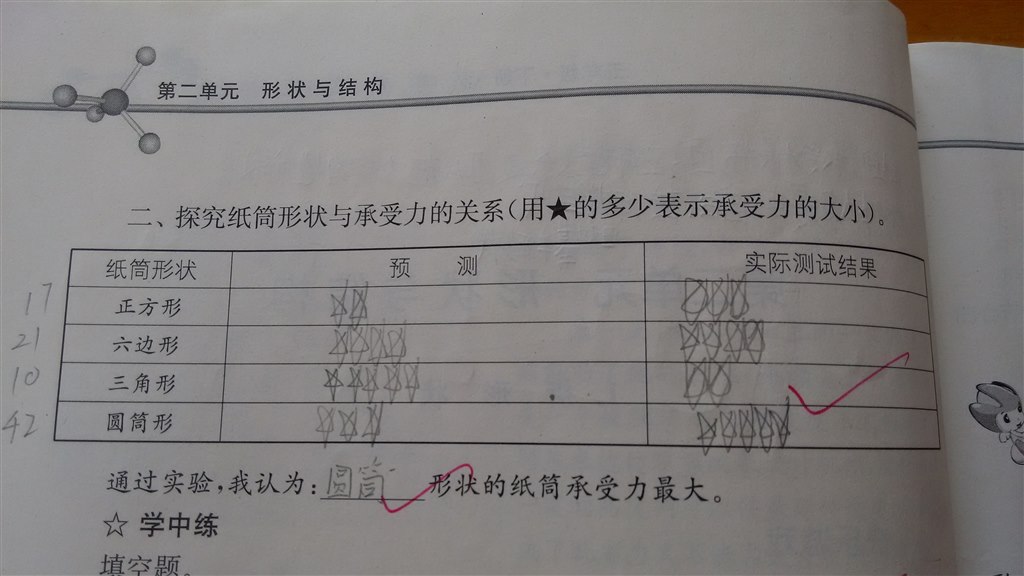 第二单元 形状与结构
二、探究纸筒形状与承受力的关系(用★的多少表示承受力的大小)。
纸筒形状 预 测 实际测试结果
17 正方形 ☆☆ ☆☆☆
21 六边形 ☆☆☆☆ ☆☆☆☆
10 三角形 ☆☆☆☆☆ ☆☆
42 圆筒形 ☆☆☆ ☆☆☆☆☆
通过实验,我认为:圆筒形状的纸筒承受力最大。
☆ 学中练
填空题。